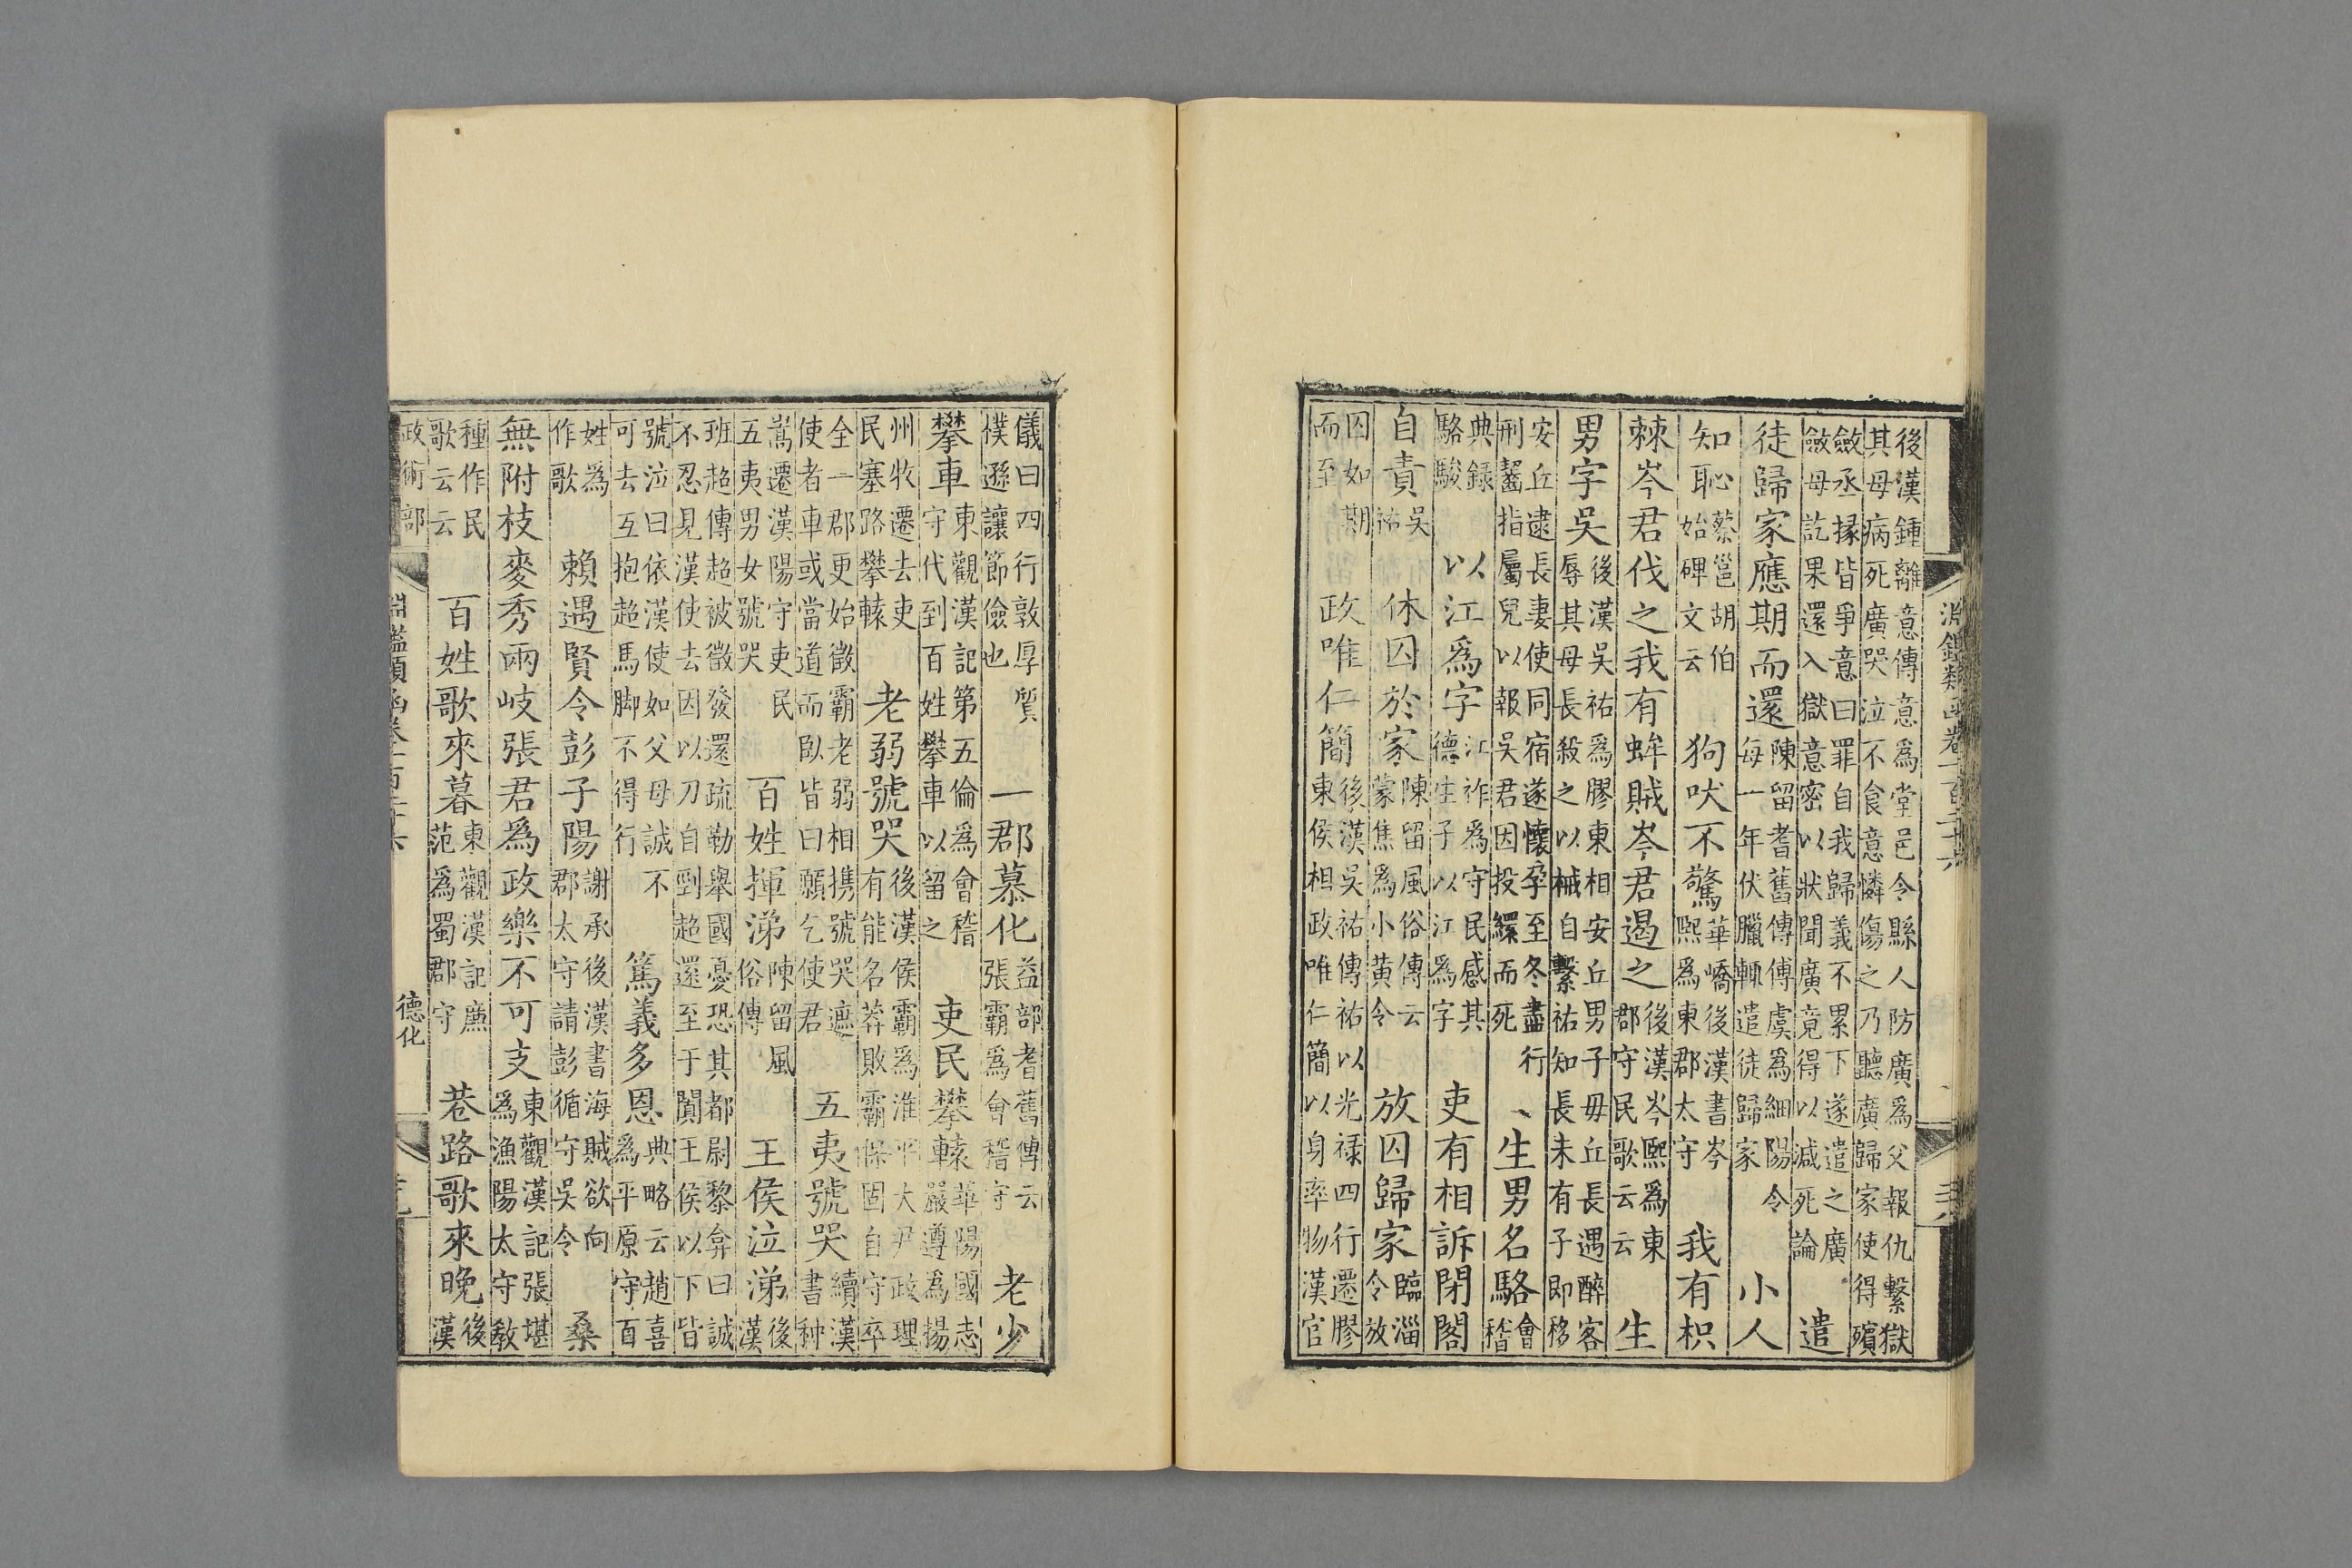 後漢鍾離意傳意爲堂邑令縣人防廣爲父報仇繫獄
其母病死廣哭泣不食意憐傷之乃聽廣歸家使得殯
斂丞掾皆爭意曰罪自我歸義不累下遂遣之廣
斂母訖果還入獄意密以狀聞廣竟得以減死論
遣
徒歸家應期而還
陳留耆舊傳傅虞爲細陽令
每一年伏臘輒遣徒歸家
小人
知恥
蔡邕胡伯
始碑文云
狗吠不驚
華嶠後漢書岑
熙爲東郡太守
我有枳
棘岑君伐之我有蛑賊岑君遏之
後漢岑熙爲東
郡守民歌云云
生
男字吳
後漢吳祐爲膠東相安丘男子毋丘長遇醉客
辱其母長殺之以械自繫祐知長未有子即移
安丘逮長妻使同宿遂懷孕至冬盡行
刑齧指屬兒以報吳君因投繯而死
生男名駱
會稽
典錄
駱駿
以江爲字
江祚爲守民感其
德生子以江爲字
吏有相訴閉閣
自責
吳祐
休囚於家
陳留風俗傳云
蒙焦爲小黃令
放囚歸家
臨淄
令放
囚如期
而至
政唯仁簡
後漢吳祐傳祐以光祿四行遷膠
東侯相政唯仁簡以身率物漢官
儀曰四行敦厚質
樸遜讓節儉也
一郡慕化
益部耆舊傳云
張霸爲會稽守
老少
攀車
東觀漢記第五倫爲會稽
守代到百姓攀車以留之
吏民攀轅
華陽國志
嚴遵爲揚
州牧遷去吏
民塞路攀轅
老弱號哭
後漢侯霸爲淮平大尹政理
有能名莽敗霸保固自守卒
全一郡更始徵霸老弱相携號哭遮
使者車或當道而臥皆曰願乞使君
五夷號哭
續漢
書种
暠遷漢陽守吏民
五夷男女號哭
百姓揮涕
陳留風
俗傳
王侯泣涕
後漢
班超傳超被徵發還疏勒舉國憂恐其都尉黎弇曰誠
不忍見漢使去因以刀自剄超還至于闐王侯以下皆
號泣曰依漢使如父母誠不
可去互抱超馬脚不得行
篤義多恩
典略云趙喜
爲平原守百
姓爲
作歌
賴遇賢令彭子陽
謝承後漢書海賊欲向
郡太守請彭循守吳令
桑
無附枝麥秀兩岐張君爲政樂不可支
東觀漢記張堪
爲漁陽太守敎
種作民
歌云云
百姓歌來暮
東觀漢記廉
范爲蜀郡守
巷路歌來晚
後漢
政術部
淵鑑類函卷一百二十六
德化